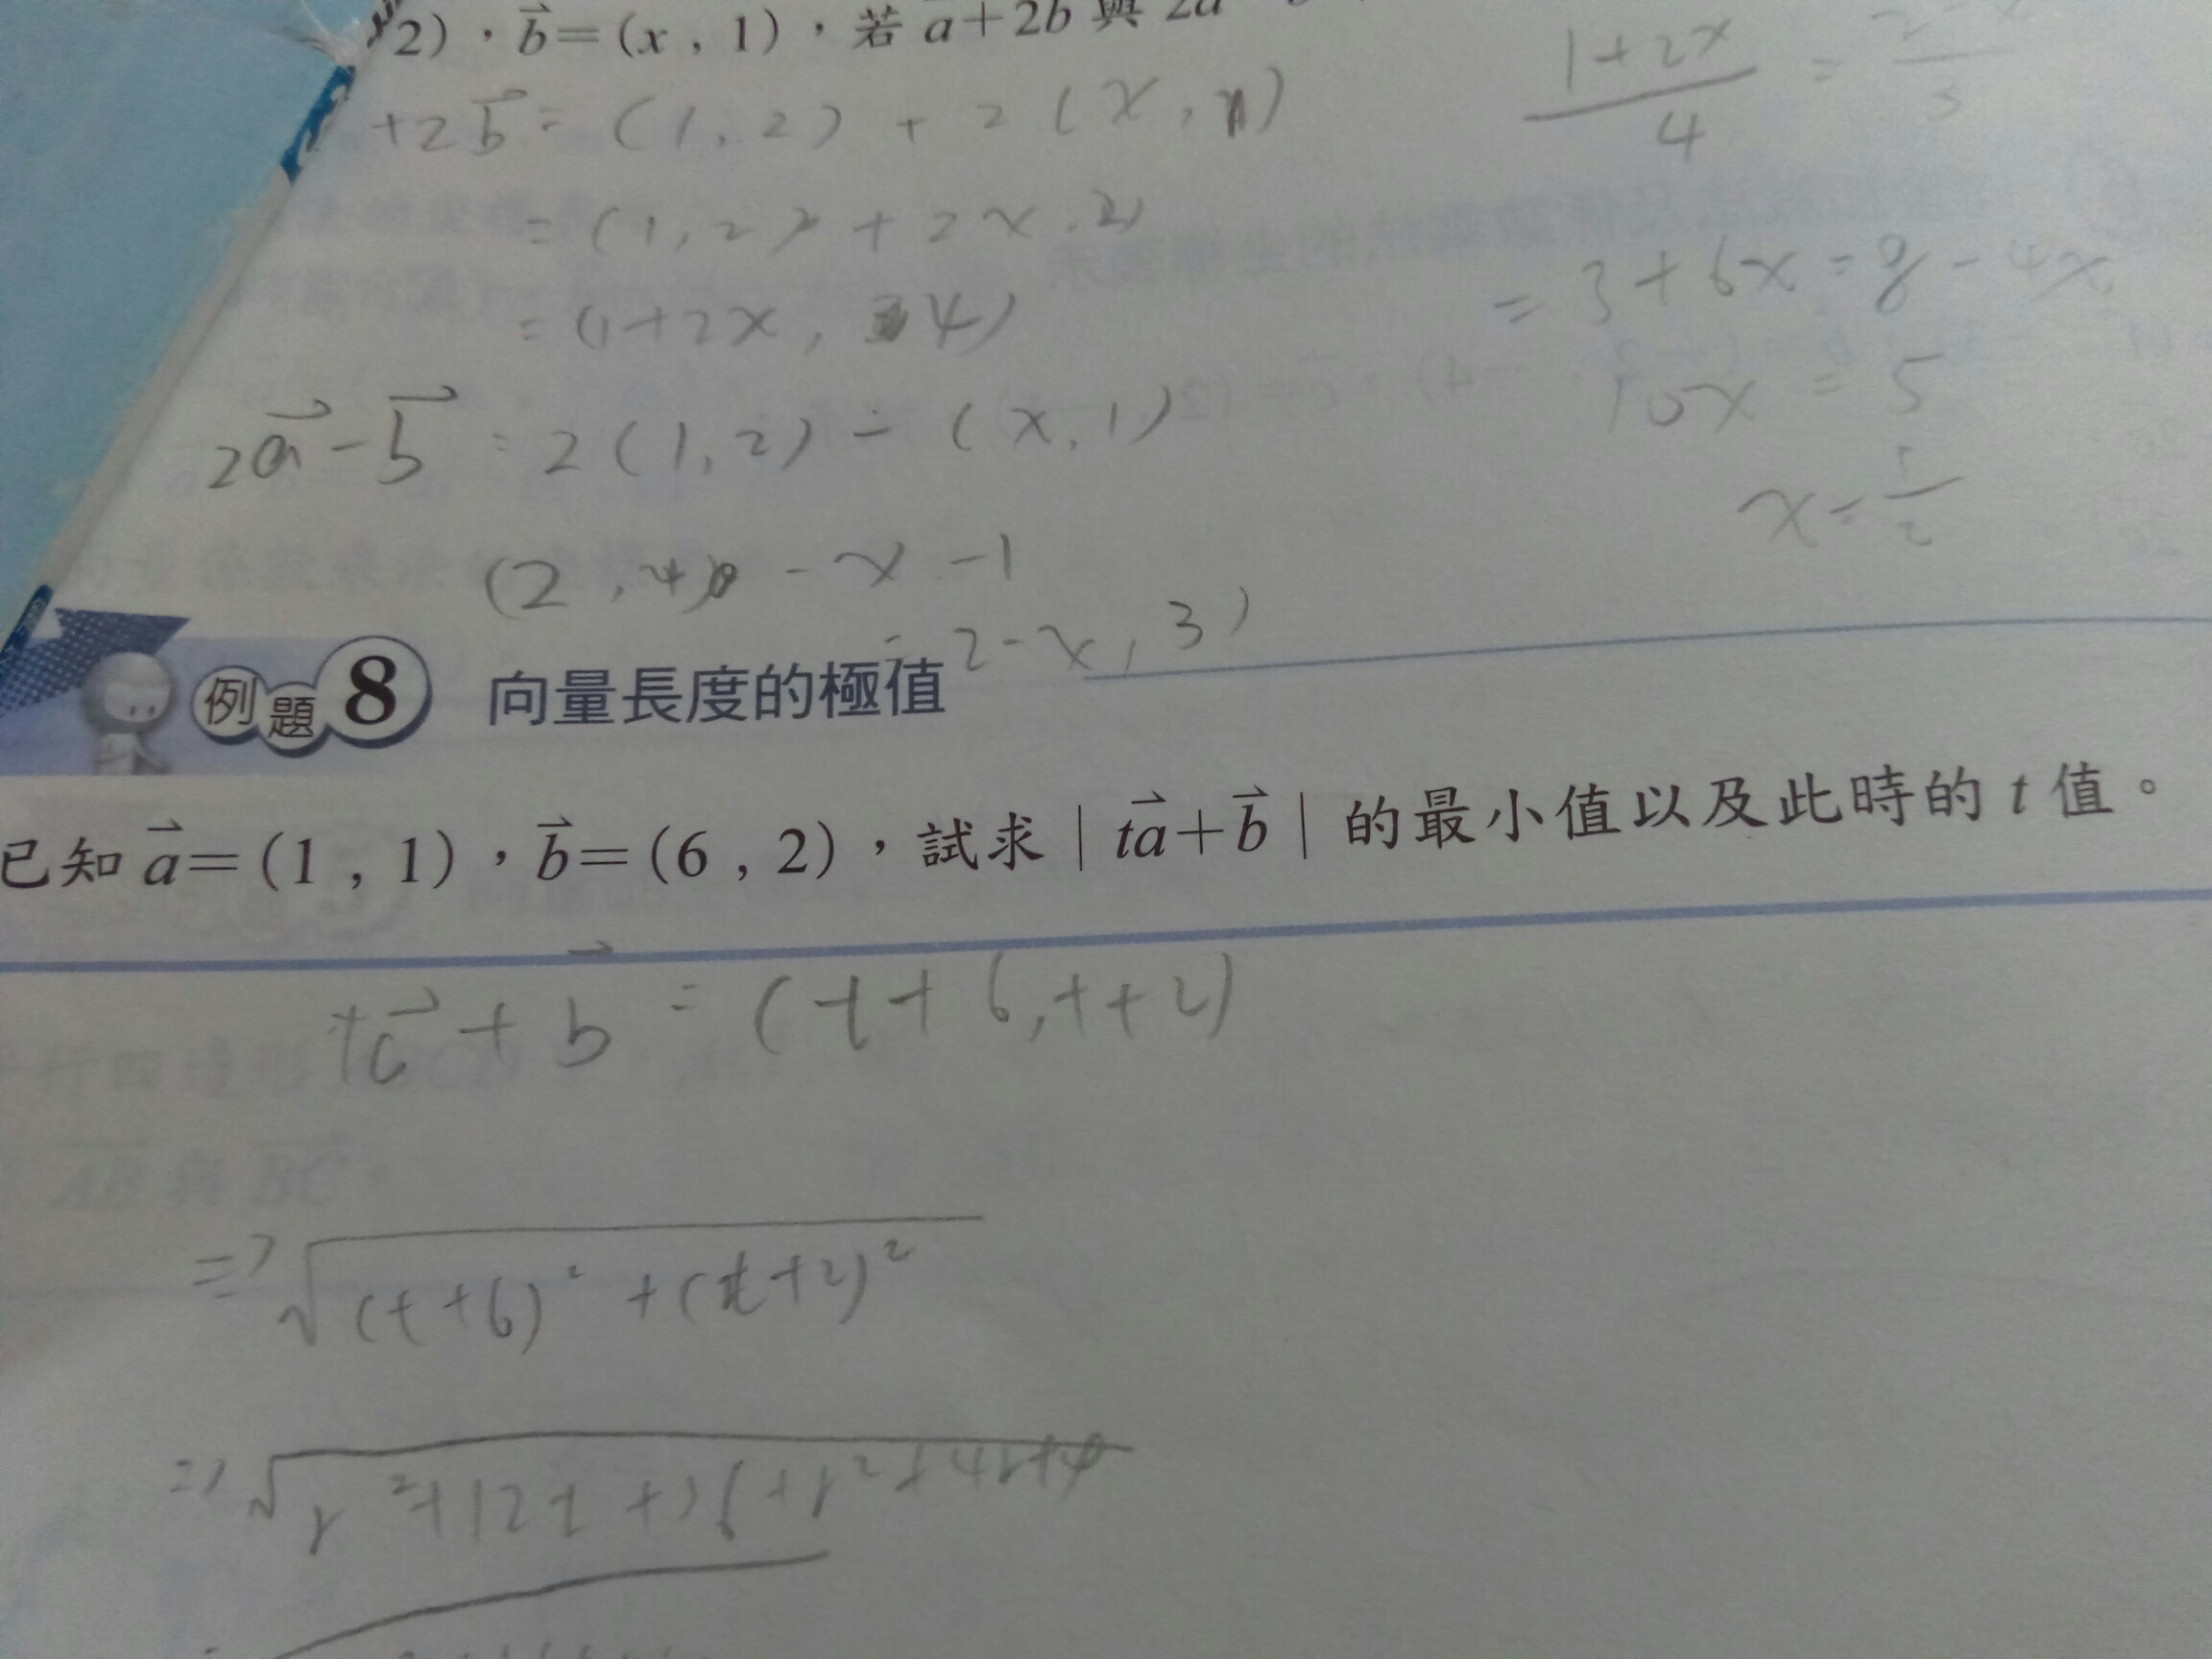 2)，b⃗=(x , 1)，若 a+2b 與 2a
+2b⃗ = (1, 2) + 2(x, 1)
= (1, 2) + 2x, 2)
= (1+2x, 4)
2a⃗-b⃗ = 2(1, 2) - (x, 1)
(2, 4) - x - 1
= 2-x, 3)
1+2x/4 = 2-x/3
= 3+6x=8-4x
10x = 5
x=1/2
例題 8 向量長度的極值
已知 a⃗=(1 , 1)，b⃗=(6 , 2)，試求｜ta⃗+b⃗｜的最小值以及此時的 t 值。
ta⃗ + b⃗ = (t+6, t+2)
=> √(t+6)² + (t+2)²
=> √t²+12t+36+t²+4t+4